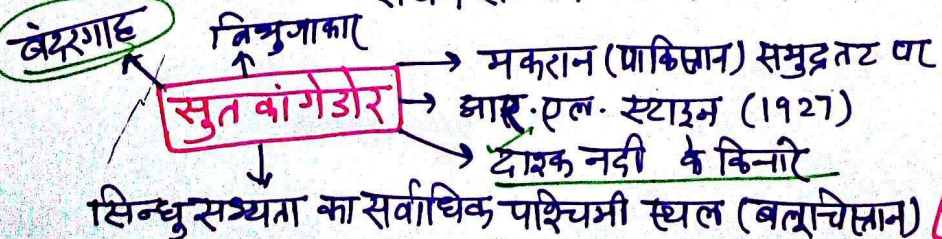 बंदरगाह
त्रिभुजाकार
मकरान (पाकिस्तान) समुद्र तट पर
सुतकांगेडोर
आर. एल. स्टाइन (1927)
दाश्क नदी के किनारे
सिन्धु सभ्यता का सर्वाधिक पश्चिमी स्थल (बलूचिस्तान)